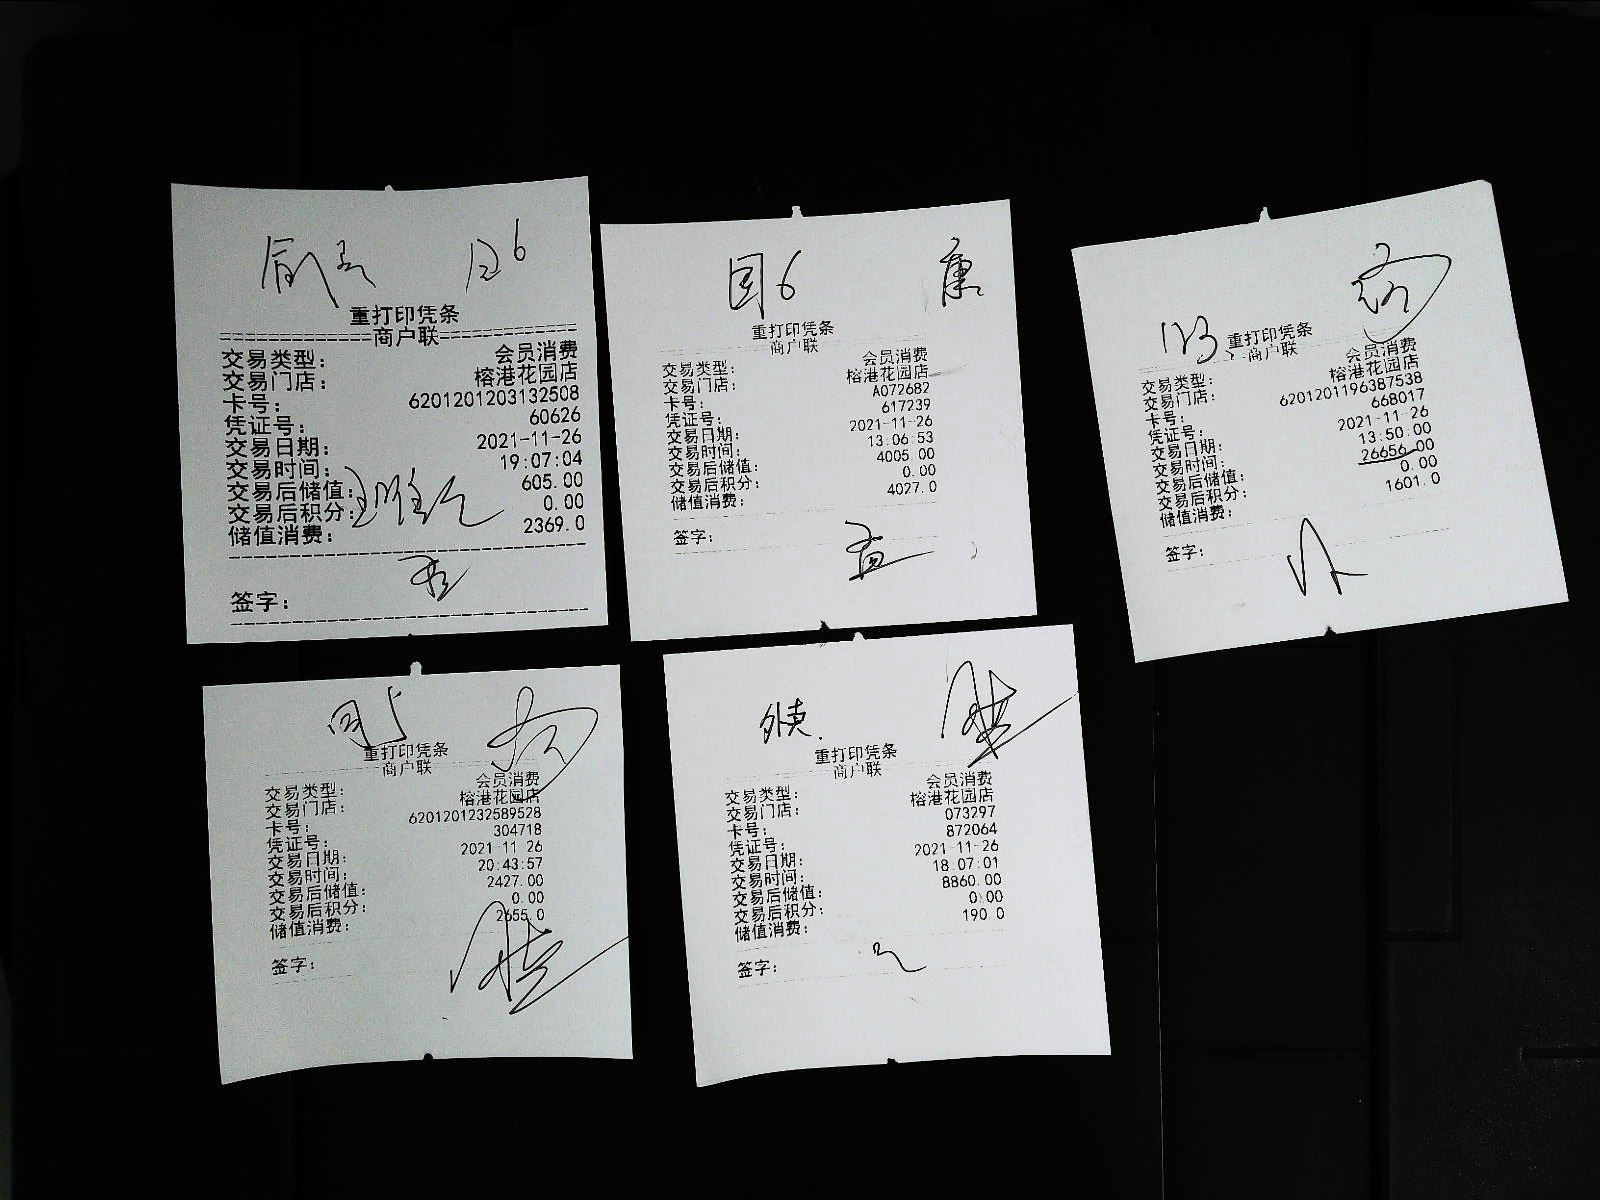 国6
重打印凭条
商户联
交易类型： 会员消费
交易门店： 榕港花园店
卡号： 6201201203132508
凭证号： 60626
交易日期： 2021-11-26
交易时间： 19:07:04
交易后储值： 605.00
交易后积分： 0.00
储值消费： 2369.0
签字：
国6 康
重打印凭条
商户联
交易类型： 会员消费
交易门店： 榕港花园店
卡号： A072682
凭证号： 617239
交易日期： 2021-11-26
交易时间： 13:06:53
交易后储值： 4005.00
交易后积分： 0.00
储值消费： 4027.0
签字：
重打印凭条
商户联
交易类型： 会员消费
交易门店： 榕港花园店
卡号： 6201201196387538
凭证号： 668017
交易日期： 2021-11-26
交易时间： 13:50:00
交易后储值： 26656.00
交易后积分： 0.00
储值消费： 1601.0
签字：
重打印凭条
商户联
交易类型： 会员消费
交易门店： 榕港花园店
卡号： 6201201232589528
凭证号： 304718
交易日期： 2021-11-26
交易时间： 20:43:57
交易后储值： 2427.00
交易后积分： 0.00
储值消费： 2655.0
签字：
外卖.
重打印凭条
商户联
交易类型： 会员消费
交易门店： 榕港花园店
卡号： 073297
凭证号： 872064
交易日期： 2021-11-26
交易时间： 18:07:01
交易后储值： 8860.00
交易后积分： 0.00
储值消费： 190.0
签字：